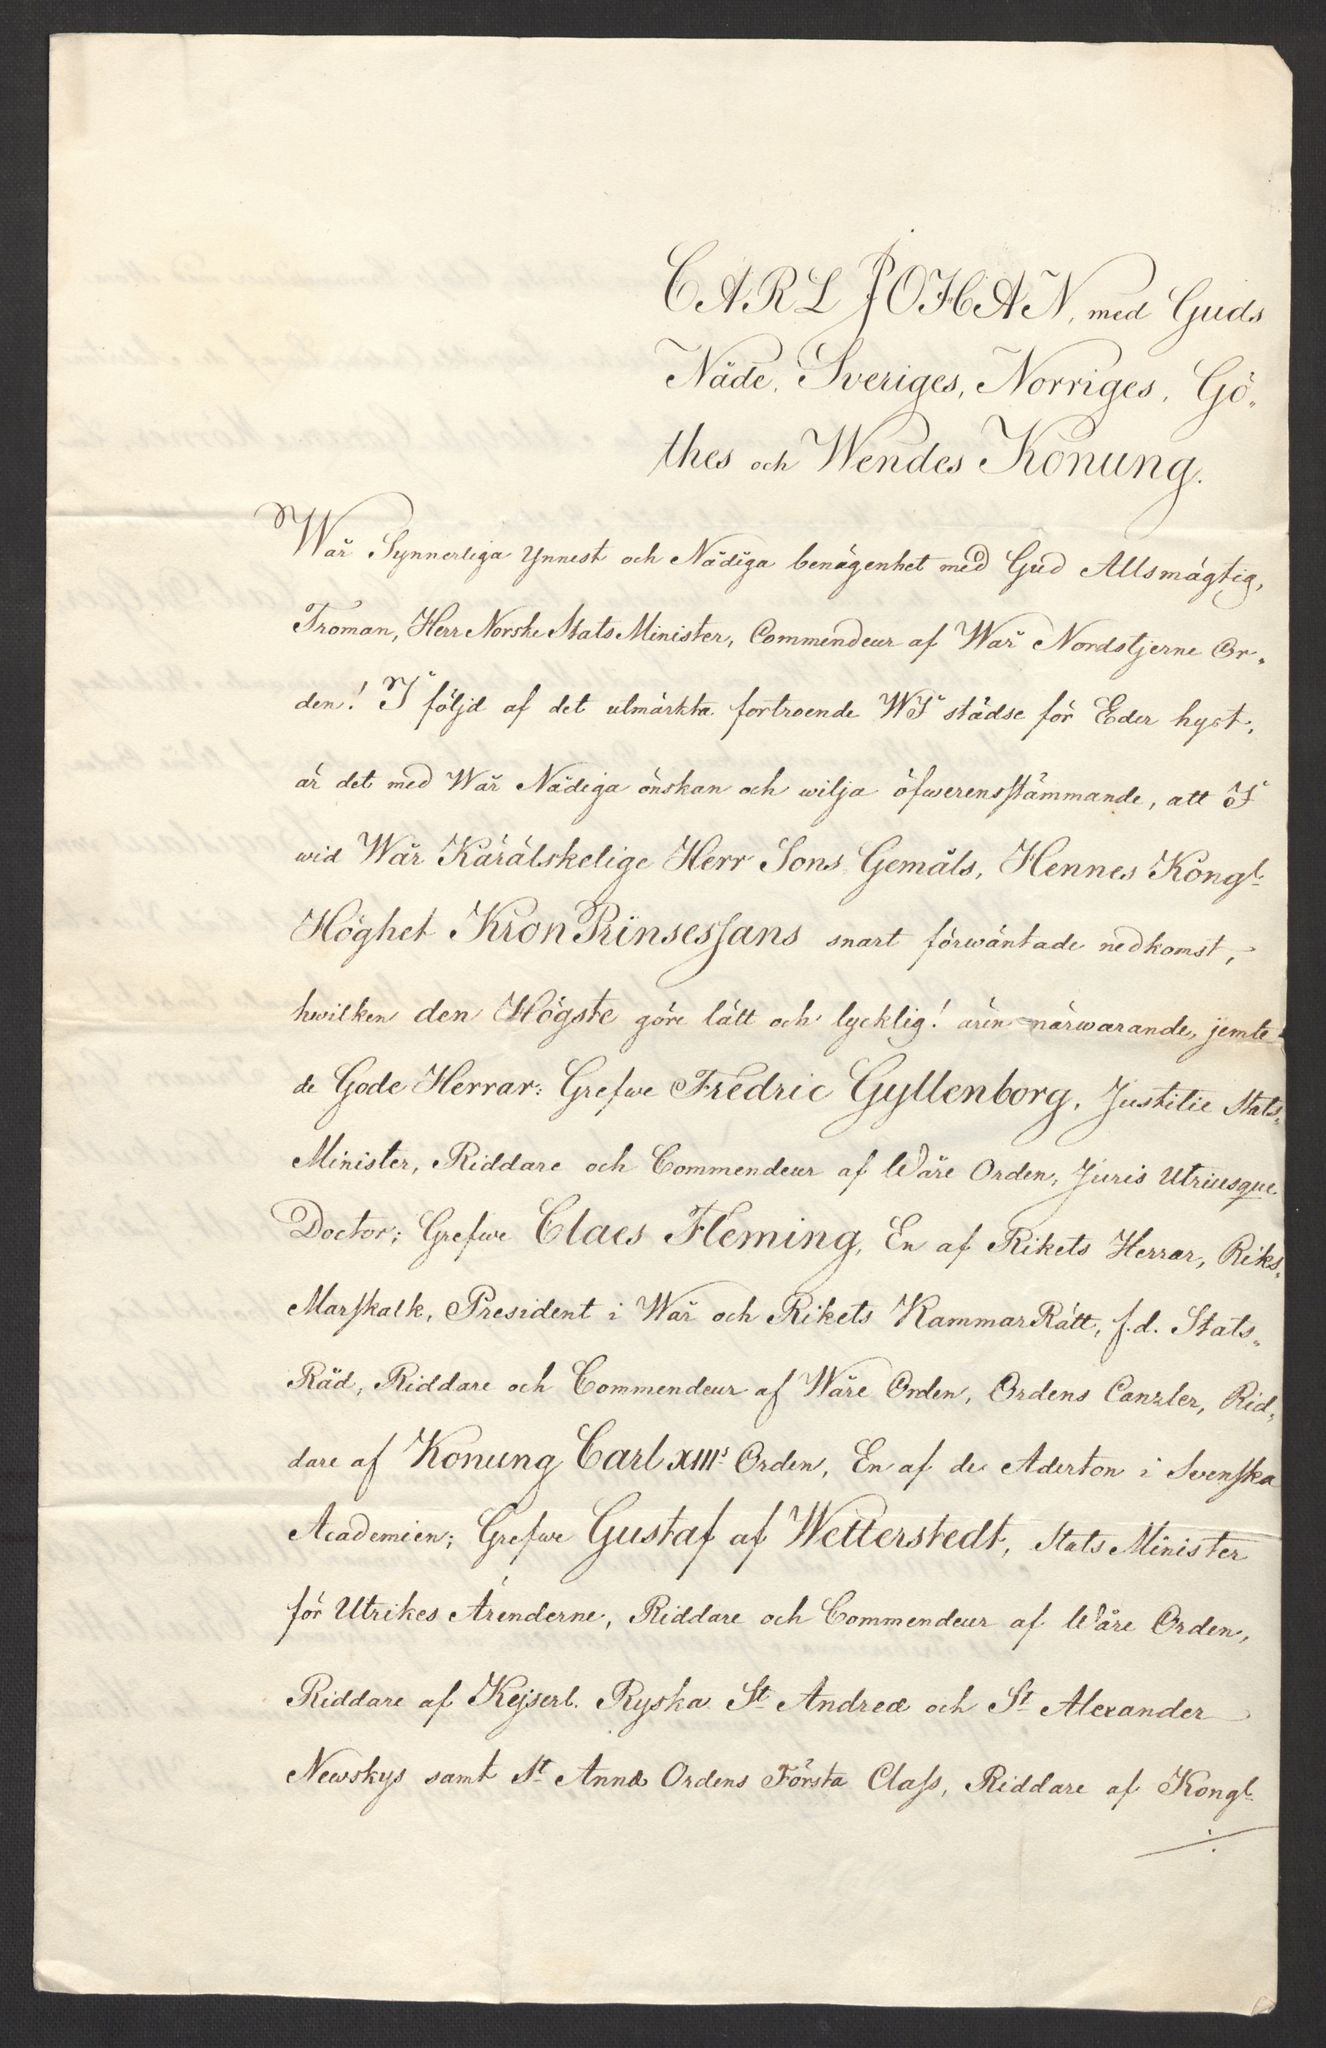 CARL JOHAN, med Guds
Nåde, Sveriges, Norriges, Gö-
thes och Wendes Konung.
Wår Synnerliga ynnest och Nådiga benägenhet med Gud Allsmägtig,
Troman, Herr Norske Stats Minister, Commendeur af Wår Nordstjerne Or-
den! I följd af det utmärkta förtroende WI städse för Eder hyst,
är det med Wår Nådiga önskan och wilja öfwerensstämmande, att I
wid Wår Käräl­skelige Herr Sons Gemåls, Hennes Kongl.
Höghet KronPrinsessans snart förwäntade nedkomst,
hwilken den Högste göre lätt och lycklig! ären närwarande, jemte
de Gode Herrar: Grefwe Fredric Gyllenborg, Justitie Stats-
Minister, Riddare och Commendeur af Wåre Orden, Juris Utriusque
Doctor; Grefwe Claes Fleming, En af Rikets Herrar, Riks-
Marskalk, President i Wår och Rikets KammarRätt, f.d. Stats-
Råd, Riddare och Commendeur af Wåre Orden, Ordens Canzler, Rid-
dare af Konung Carl XIIIs Orden, En af de Aderton i Svenska
Academien; Grefwe Gustaf af Wetterstedt, Stats Minister
för Utrikes Ärenderne, Riddare och Commendeur af Wåre Orden,
Riddare af Kejserl. Ryska St Andreæ och St Alexander
Newskys samt St Annæ Ordens Första Class, Riddare af Kongl.